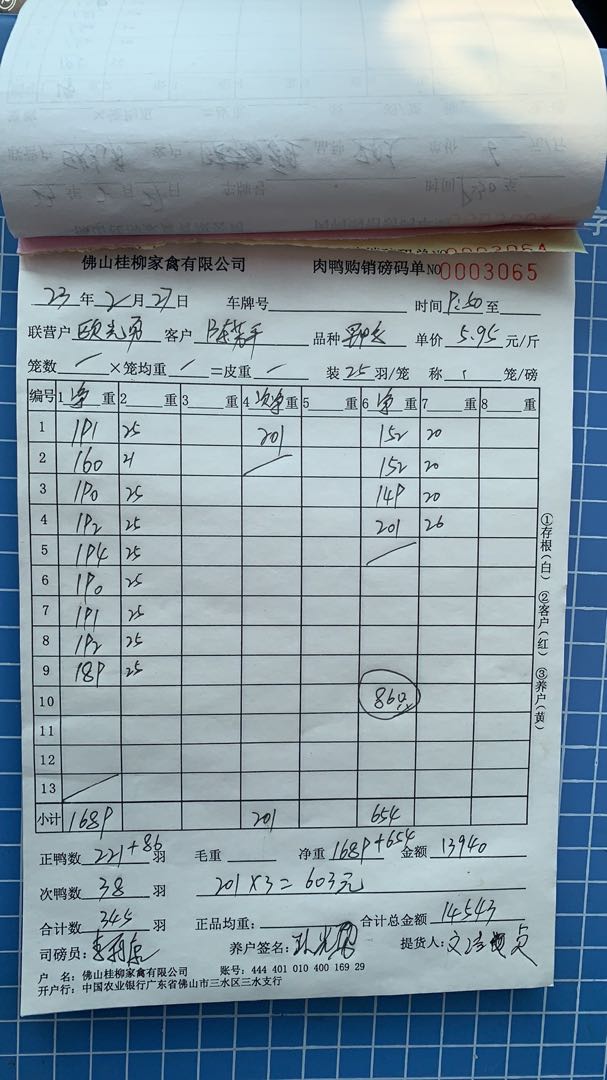 佛山桂柳家禽有限公司 肉鸭购销磅码单 NO 0003065
23年2月27日 车牌号 时间 9:50 至
联营户 欧志勇 客户 品种 单价 5.95 元/斤
笼数 / ×笼均重 / =皮重 / 装 25 羽/笼 称 1 笼/磅
编号 1 净 重 2 重 3 重 4 次净 重 5 重 6 净 重 7 重 8 重
1 191 25 201 152 20
2 160 21 / 152 20
3 190 25 149 20
4 192 25 201 26
5 194 25 /
6 190 25
7 191 25
8 192 25
9 189 25
10 86
11
12
13 /
小计 1689 201 654
正鸭数 221+86 羽 毛重 净重 1689+654 金额 13940
次鸭数 38 羽 201×3=603元
合计数 345 羽 正品均重: 合计总金额 14543
司磅员: 养户签名: 提货人:
户 名: 佛山桂柳家禽有限公司 账号: 444 401 010 400 169 29
开户行: 中国农业银行广东省佛山市三水区三水支行
①存根(白) ②客户(红) ③养户(黄)